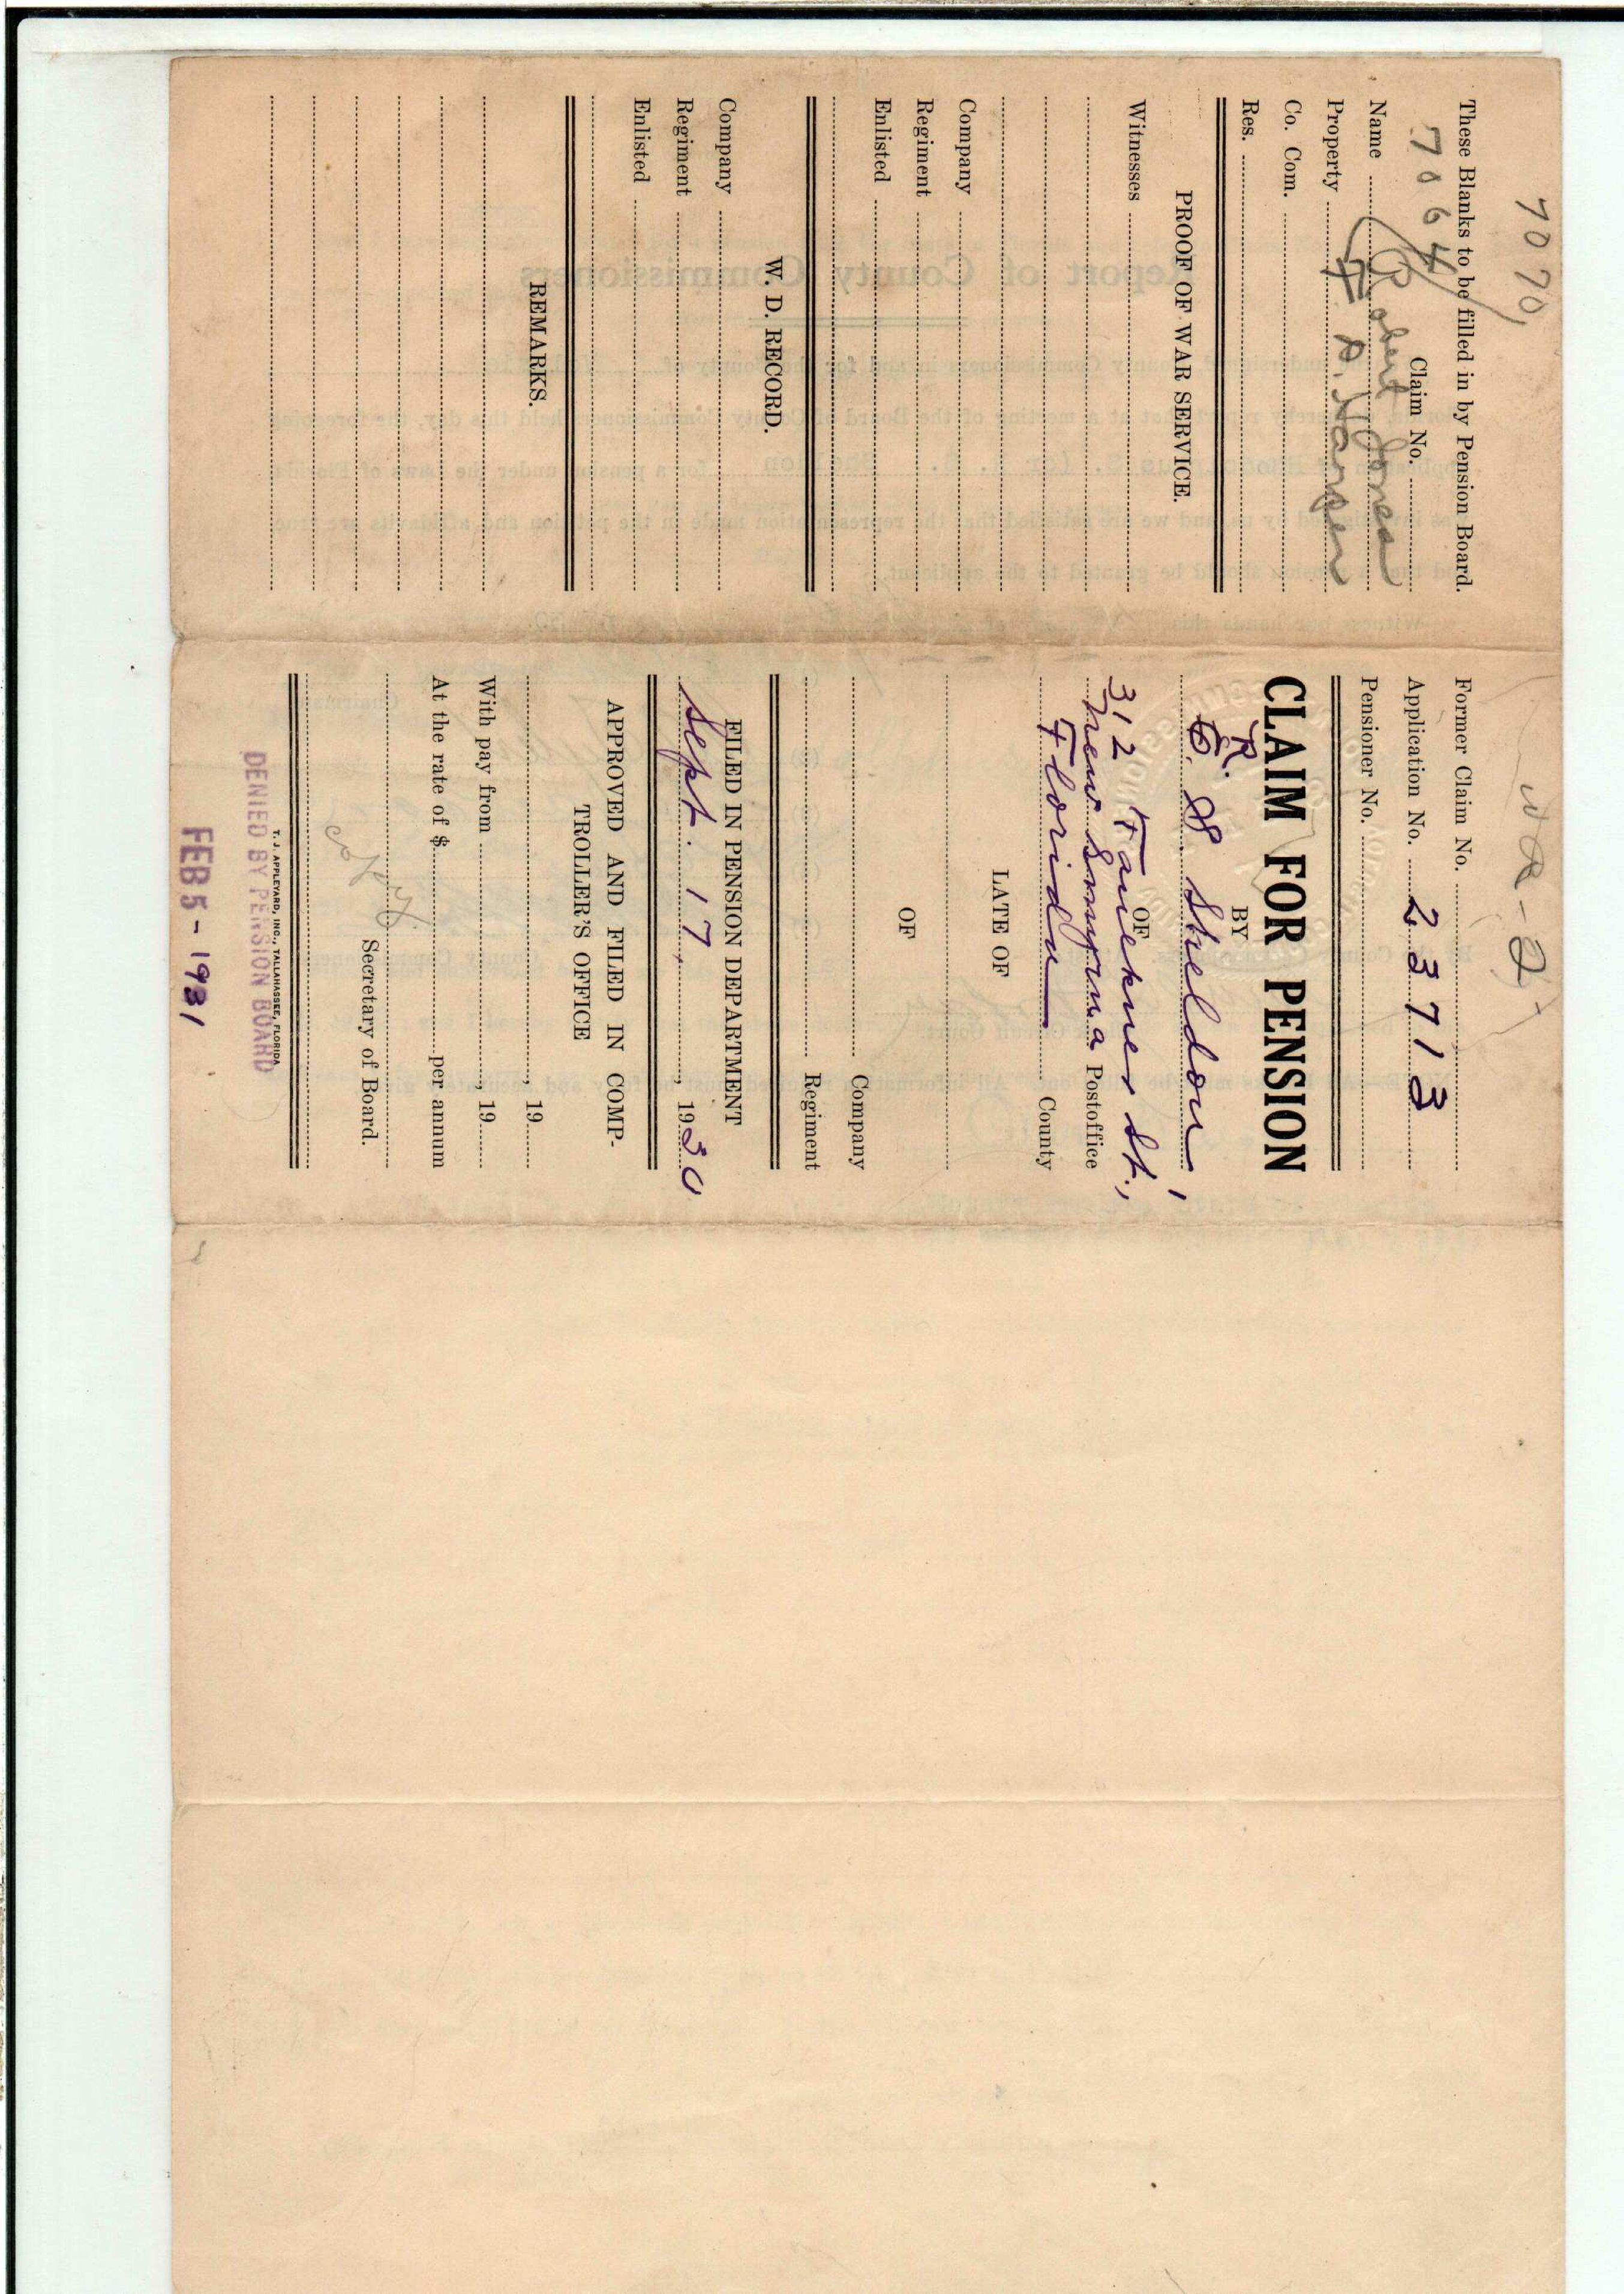 7070
These Blanks to be filled in by Pension Board.
7064 Claim No.
Name Robert Jones
Property F. A. Harper
Co. Com.
Res.
PROOF OF WAR SERVICE.
Witnesses
Company
Regiment
Enlisted
W. D. RECORD.
Company
Regiment
Enlisted
REMARKS.
Former Claim No.
Application No. 23713
Pensioner No.
CLAIM FOR PENSION
BY
R. S. Sheldon,
OF
312 Faulkner St.,
New Smyrna Postoffice
Florida County
LATE OF
OF
Company
Regiment
FILED IN PENSION DEPARTMENT
Sept. 17, 1930
APPROVED AND FILED IN COMP-
TROLLER'S OFFICE
, 19
With pay from , 19
At the rate of $ per annum
copy.
Secretary of Board.
T. J. APPLEYARD, INC., TALLAHASSEE, FLORIDA
DENIED BY PENSION BOARD
FEB 5 - 1931